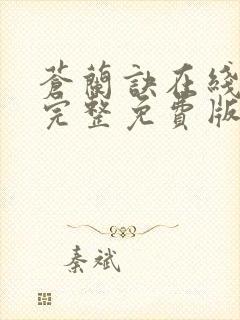 蒼蘭訣在綫
完整免費版
秦斌